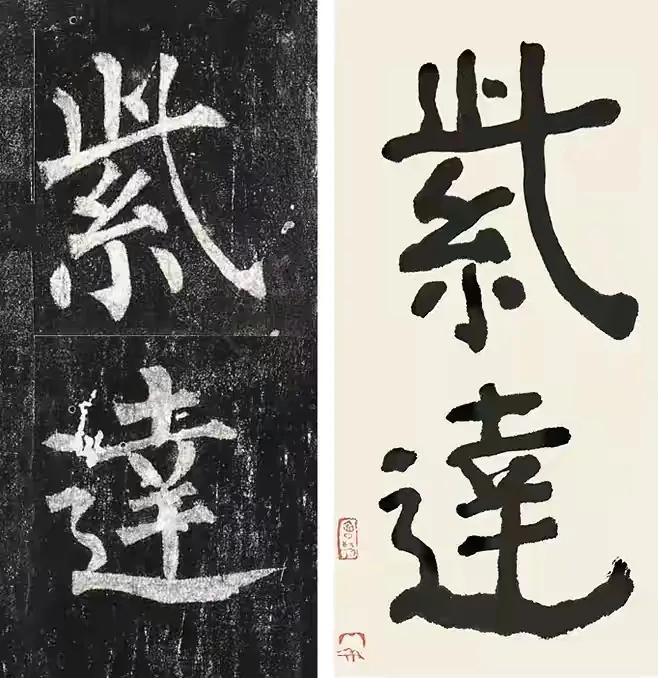 紫達
紫達